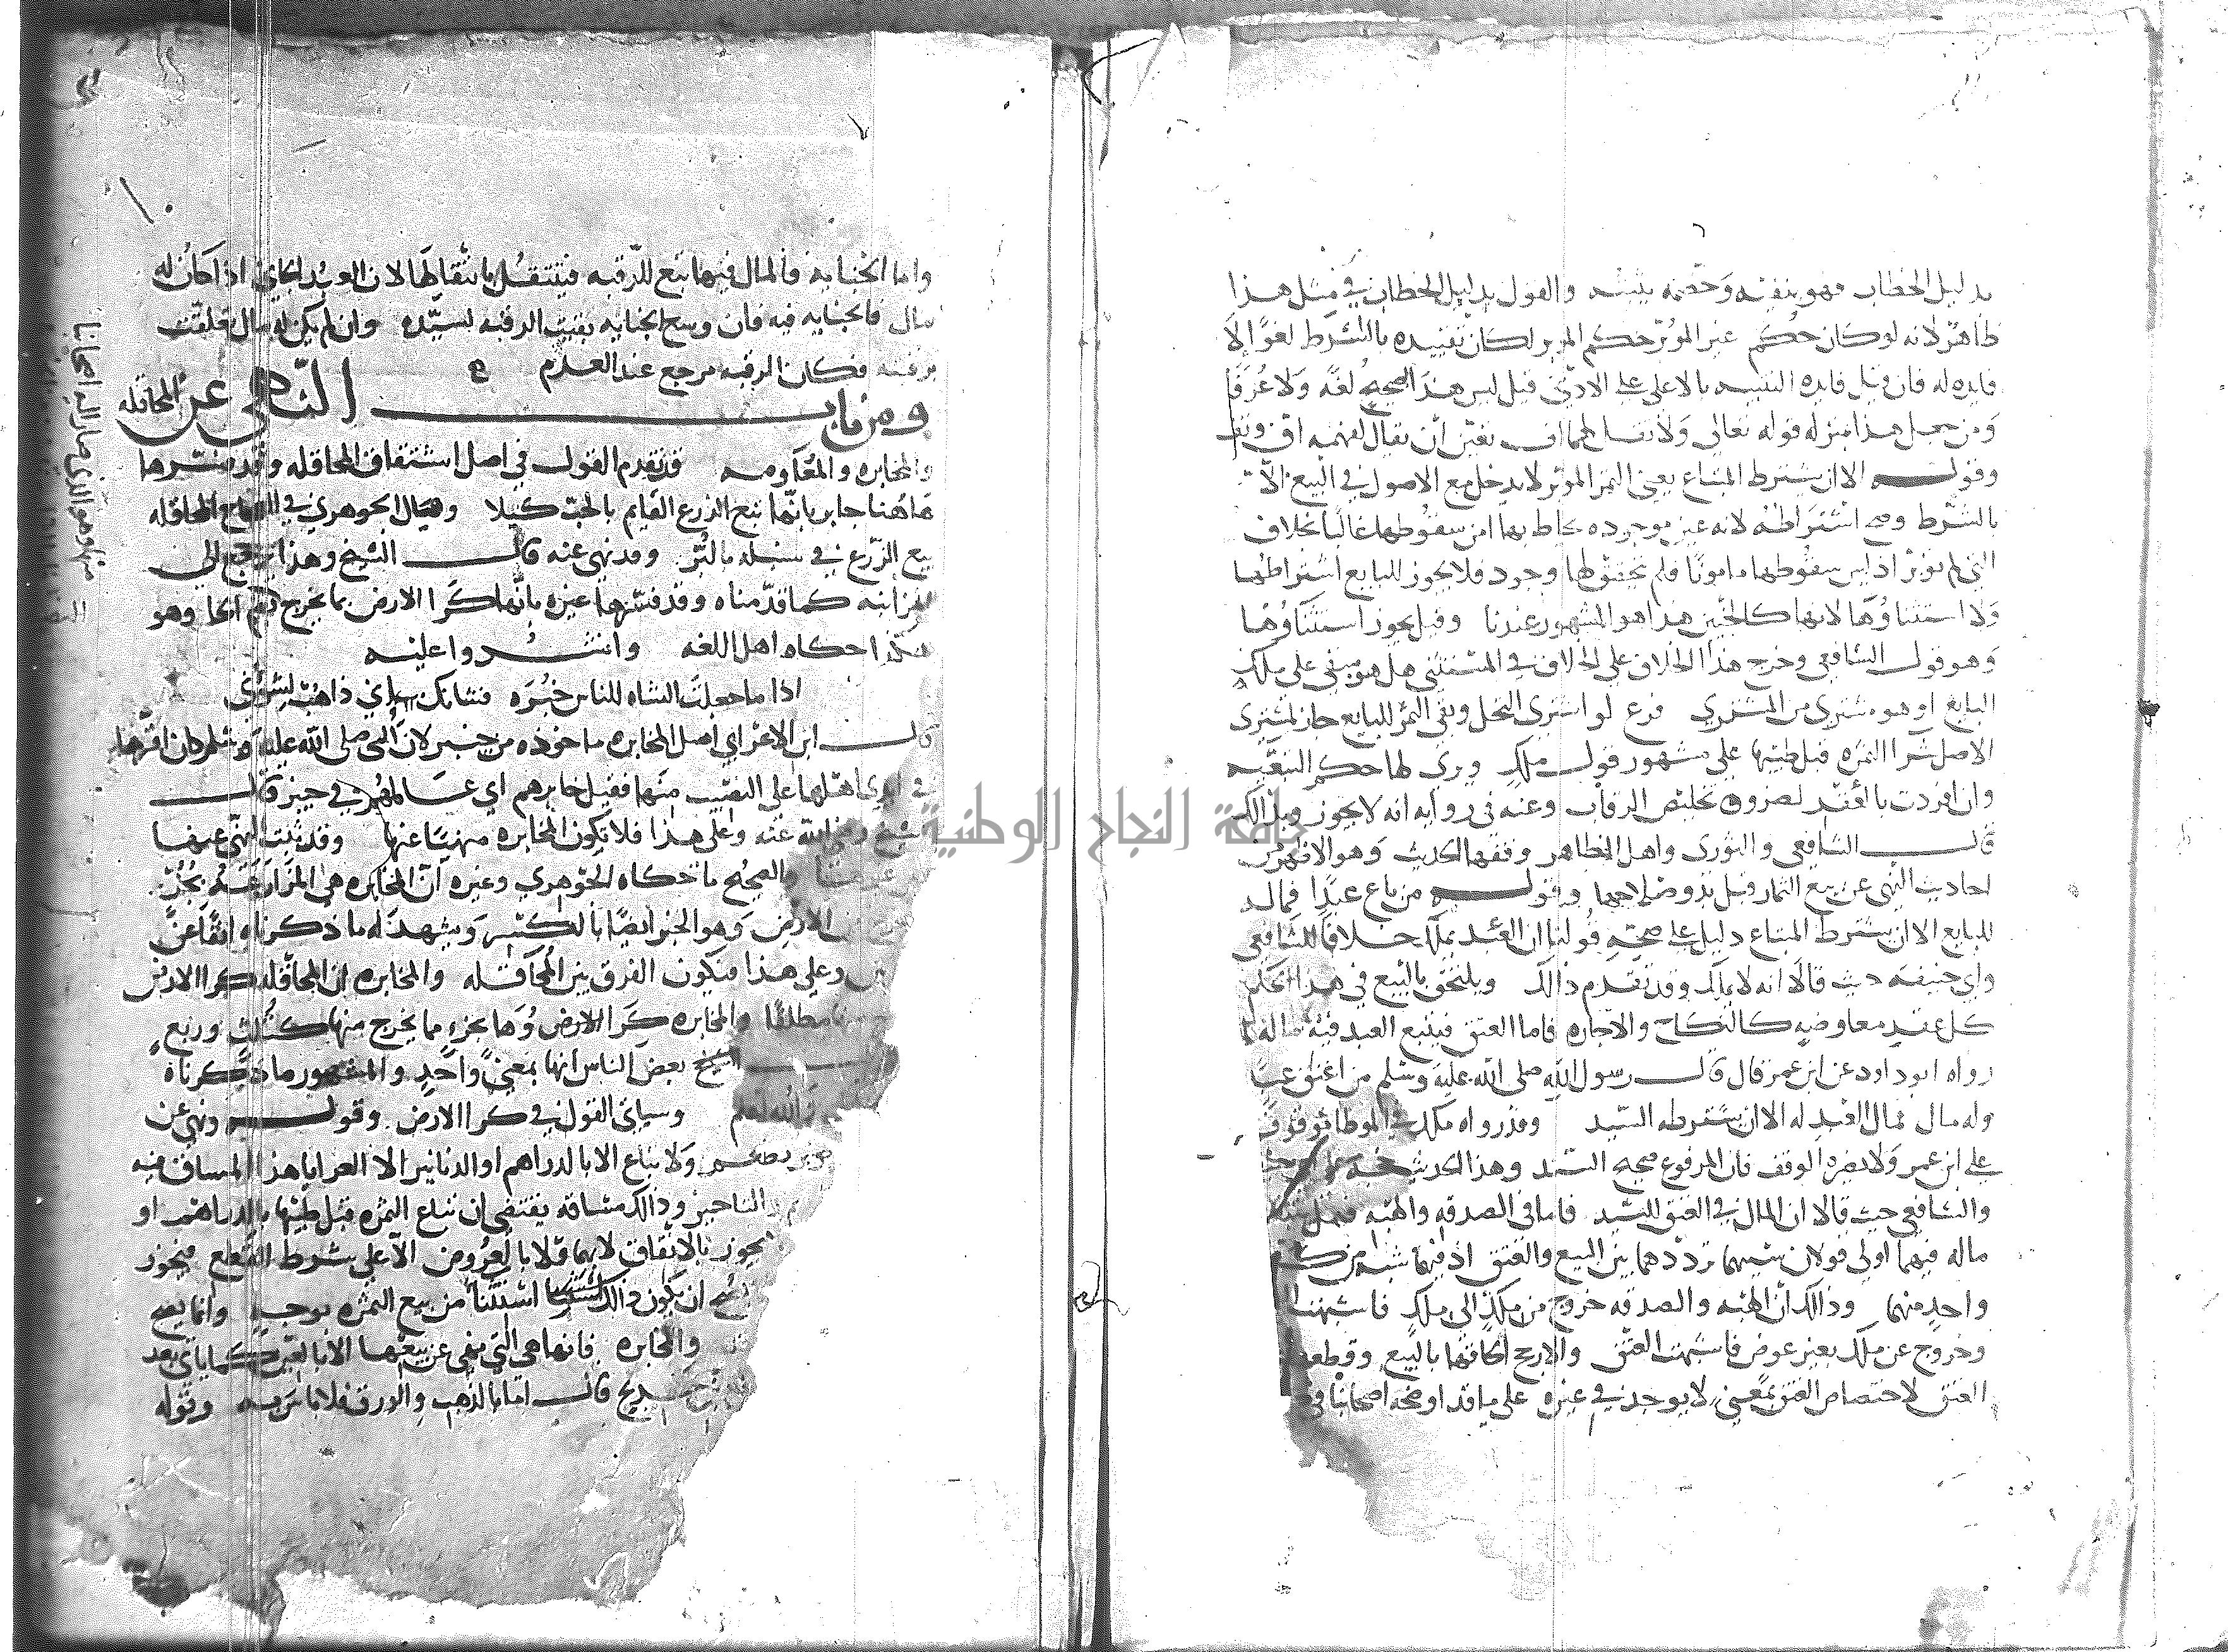 بدليل الخطاب فهو ينفيه وخصمه يثبته والقول بدليل الخطاب في مثل هذا
ظاهر لانه لو كان حكم غير الموبر حكم الموبر لكان تقييده بالشرط لغوا لا
فايده له فان قيل فايده التنبيه بالاعلى على الادنى قيل ليس هذا بصحيح لغة ولا عرفا
ومن جعل هذا بمنزله قوله تعالى ولا تقل لهما اف تعين ان يقال لفهمه اف وتف
وقوله الا ان يشترط المبتاع يعني الثمر الموبر لا يدخل مع الاصول في البيع الا
بالشرط وصح اشتراطه لانه عين موجوده يحاط بها امن سقوطها غالبا بخلاف
التي لم توبر اذ ليس سقوطها مامونا فلم يتحقق لها وجود فلا يجوز للبايع اشتراطها
ولا استثناوها لانها كالجنين هذا هو المشهور عندنا وقيل يجوز استثناوها
وهو قول الشافعي وخرج هذا الخلاف على الخلاف في المستثنى هل هو مبقى على ملك
البايع او هو مشترى من المشتري فرع لو اشترى النخل وبقي الثمر للبايع جاز لمشتري
الاصل شرا الثمره قبل طيبها على مشهور قول ملك ويرى لها حكم التبعيه
وان افردت بالعقد لضروره تخليص الرقاب وعنه في روايه انه لا يجوز وبذلك
قال الشافعي والثوري واهل الظاهر وفقها الحديث وهو الاظهر من
احاديث النهي عن بيع الثمار قبل بدو صلاحها وقوله من باع عبدا فماله
للبايع الا ان يشترط المبتاع دليل على صحة قولنا ان العبد يملك خلافا للشافعي
وابي حنيفه حيث قالا انه لا يملك وقد تقدم ذلك ويلتحق بالبيع في هذا الحكم
كل عقد معاوضه كالنكاح والاجاره فاما العتق فيتبع العبد فيه ماله لما
رواه ابو داود عن ابن عمر قال قال رسول الله صلى الله عليه وسلم من اعتق عبدا
وله مال فمال العبد له الا ان يشترطه السيد وقد رواه ملك في الموطا موقوفا
على ابن عمر ولا يضره الوقف فان المرفوع صحيح السند وهذا الحديث حجه على
والشافعي حيث قالا ان المال في العتق للسيد فاما في الصدقه والهبه فهل يتبعه
ماله فيهما اولى قولان سببهما ترددهما بين البيع والعتق اذ فيهما شبه من كل
واحد منهما وذلك ان الهبه والصدقه خروج من ملك الى ملك فاشبهتا
وخروج عن ملك بغير عوض فاشبهت العتق والارجح الحاقها بالبيع وقطعها
العتق لاختصاص العتق بمعنى لا يوجد في غيره على ما قد اوضحه اصحابنا في
واما الجنايه فالمال فيها تبع للرقبه فينتقل بانتقالها لان العبد الجاني اذا كان له
مال فالجنايه فيه فان وسع الجنايه بقيت الرقبه لسيده وان لم يكن له مال تعلقت
برقبته فكان الرقبه مرجع عند العدم
ومن باب النهي عن المحاقله
والمخابره والمعاومه قد تقدم القول في اصل اشتقاق المحاقله وقد فسرها
هاهنا جابر بانها بيع الزرع القايم بالحب كيلا وقال الجوهري في المحاقله
بيع الزرع في سنبله بالبر وقد نهي عنه قال الشيخ وهذا يرجع الى
المزابنه كما قدمناه وقد فسرها غيره بانها كرا الارض بما يخرج منها وهو
هكذا حكاه اهل اللغه وانشدوا عليه
اذا ما جعلت الشاه للناس خبره فشانك اني ذاهب لشوني
قال ابن الاعرابي اصل المخابره ماخوذه من خيبر لان النبي صلى الله عليه وسلم كان اقرها
في ايدي اهلها على النصف منها فقيل خابرهم اي عاملهم في خيبر قال
الشيخ رضي الله عنه وعلى هذا فلا تكون المخابره منهيا عنها وقد ثبت النهي عنها
والصحيح ما حكاه الجوهري وغيره ان المخابره هي المزارعه بجزء
الارض وهو الخبر ايضا بالكسر ويشهد له ما ذكرناه انفا عن
وعلى هذا فيكون الفرق بين المحاقله والمخابره ان المحاقله كرا الارض
مطلقا والمخابره كرا الارض وها بجزء مما يخرج منها كثلث وربع
الشيخ بعض الناس انها بمعنى واحد والمشهور ما ذكرناه
والله اعلم وسياتي القول في كرا الارض وقوله ونهى عن
ولا يباع الا بالدراهم او الدنانير الا العرايا هذا المساق فيه
وذلك مساقه يقتضي ان تباع الثمره قبل طيبها بالدراهم او
يجوز بالاتفاق لا بهما ولا بالعروض الا على شرط القطع فيجوز
ان يكون ذلك استثنا من بيع الثمره بوجه وانما يصح
والمخابره فانها هي التي نهى عن بيعها الا بالعين كما ياتي بعد
خديج قال اما بالذهب والورق فلا باس به وقوله